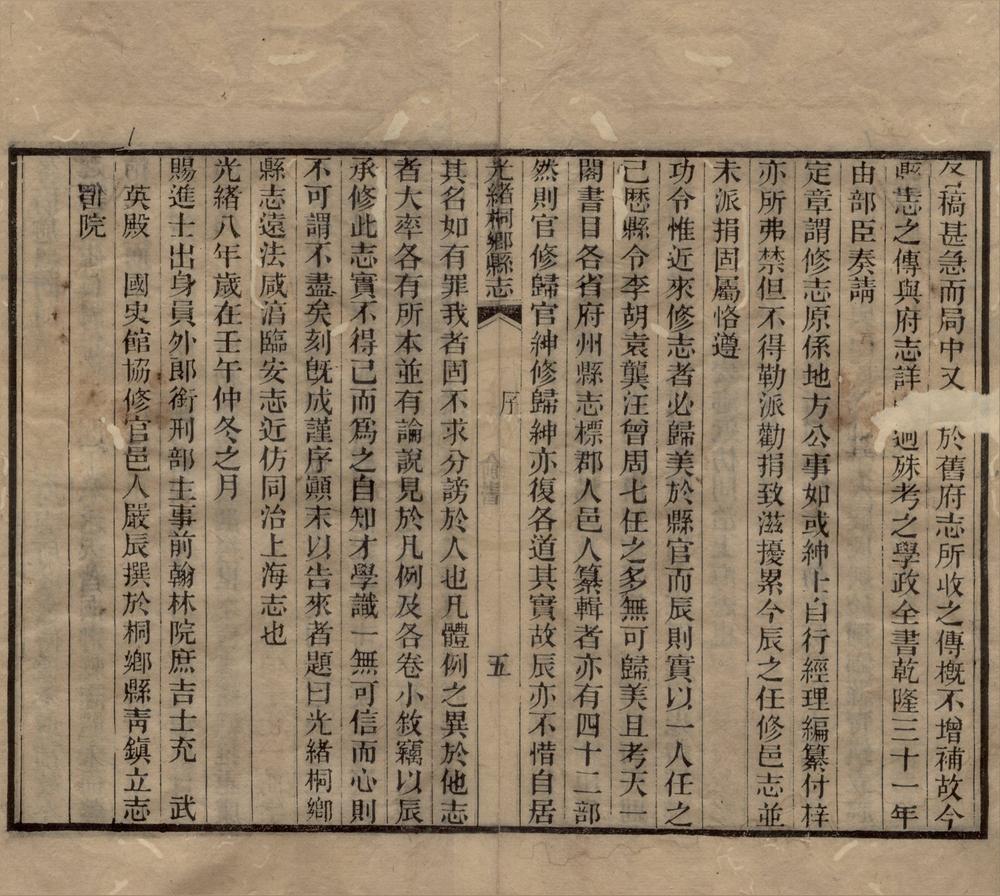 及稿甚急而局中又於舊府志所收之傳槪不增補故今
之傳與府志詳迴殊考之學政全書乾隆三十一年
由部臣奏請
定章謂修志原係地方公事如或紳士自行經理編纂付梓
亦所弗禁但不得勒派勸捐致滋擾累今辰之任修邑志並
未派捐固屬恪遵
功令惟近來修志者必歸美於縣官而辰則實以一人任之
已歷縣令李胡袁龔汪曾周七任之多無可歸美且考天一
閣書目各省府州縣志標郡人邑人纂輯者亦有四十二部
然則官修歸官紳修歸紳亦復各道其實故辰亦不惜自居
光緒桐鄉縣志
序
五
其名如有罪我者固不求分謗於人也凡體例之異於他志
者大率各有所本並有論說見於凡例及各卷小敘竊以辰
承修此志實不得已而爲之自知才學識一無可信而心則
不可謂不盡矣刻旣成謹序顚末以告來者題曰光緒桐鄉
縣志遠法咸淳臨安志近仿同治上海志也
光緒八年歲在壬午仲冬之月
賜進士出身員外郎銜刑部主事前翰林院庶吉士充 武
英殿 國史館協修官邑人嚴辰撰於桐鄉縣靑鎭立志
書院